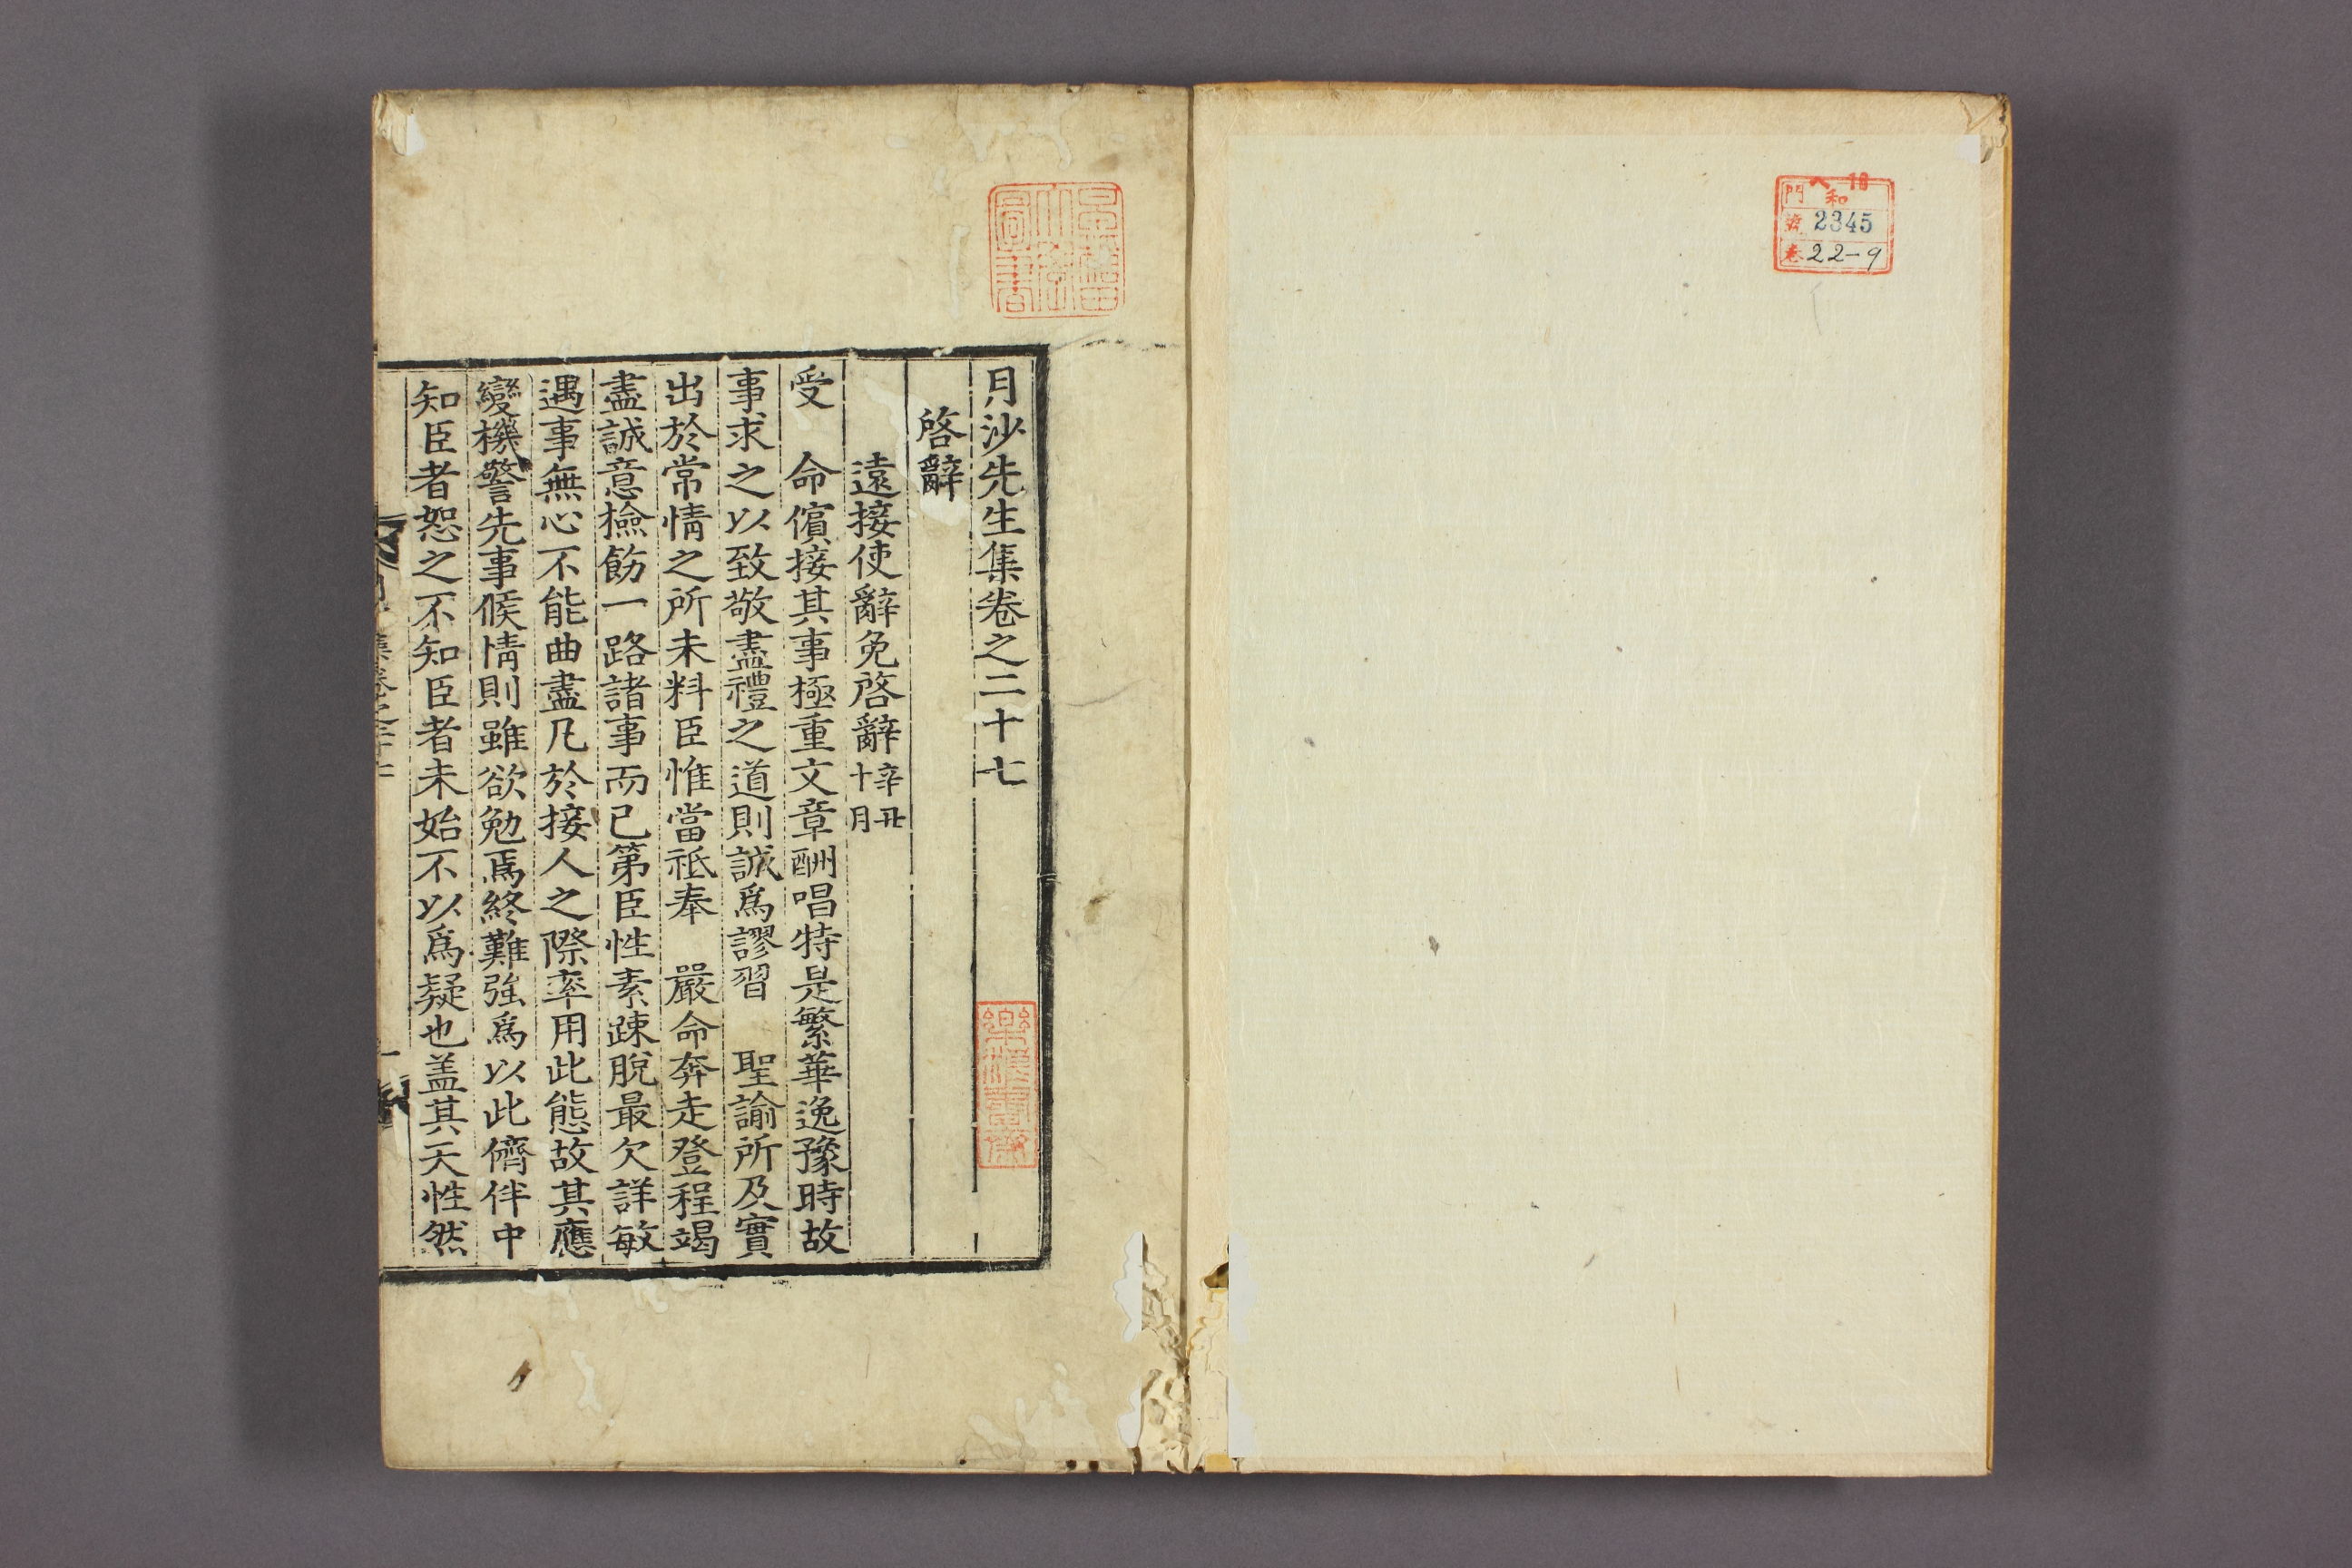 和
門
號 2345
卷 22-9
月沙先生集卷之二十七
啓辭
遠接使辭免啓辭辛丑十月
受　命儐接其事極重文章酬唱特是繁華逸豫時故
事求之以致敬盡禮之道則誠爲謬習　聖諭所及實
出於常情之所未料臣惟當祗奉　嚴命奔走登程竭
盡誠意檢飭一路諸事而已第臣性素踈脫最欠詳敏
遇事無心不能曲盡凡於接人之際率用此態故其應
變機警先事候情則雖欲勉焉終難強爲以此儕伴中
知臣者恕之不知臣者未始不以爲疑也盖其天性然